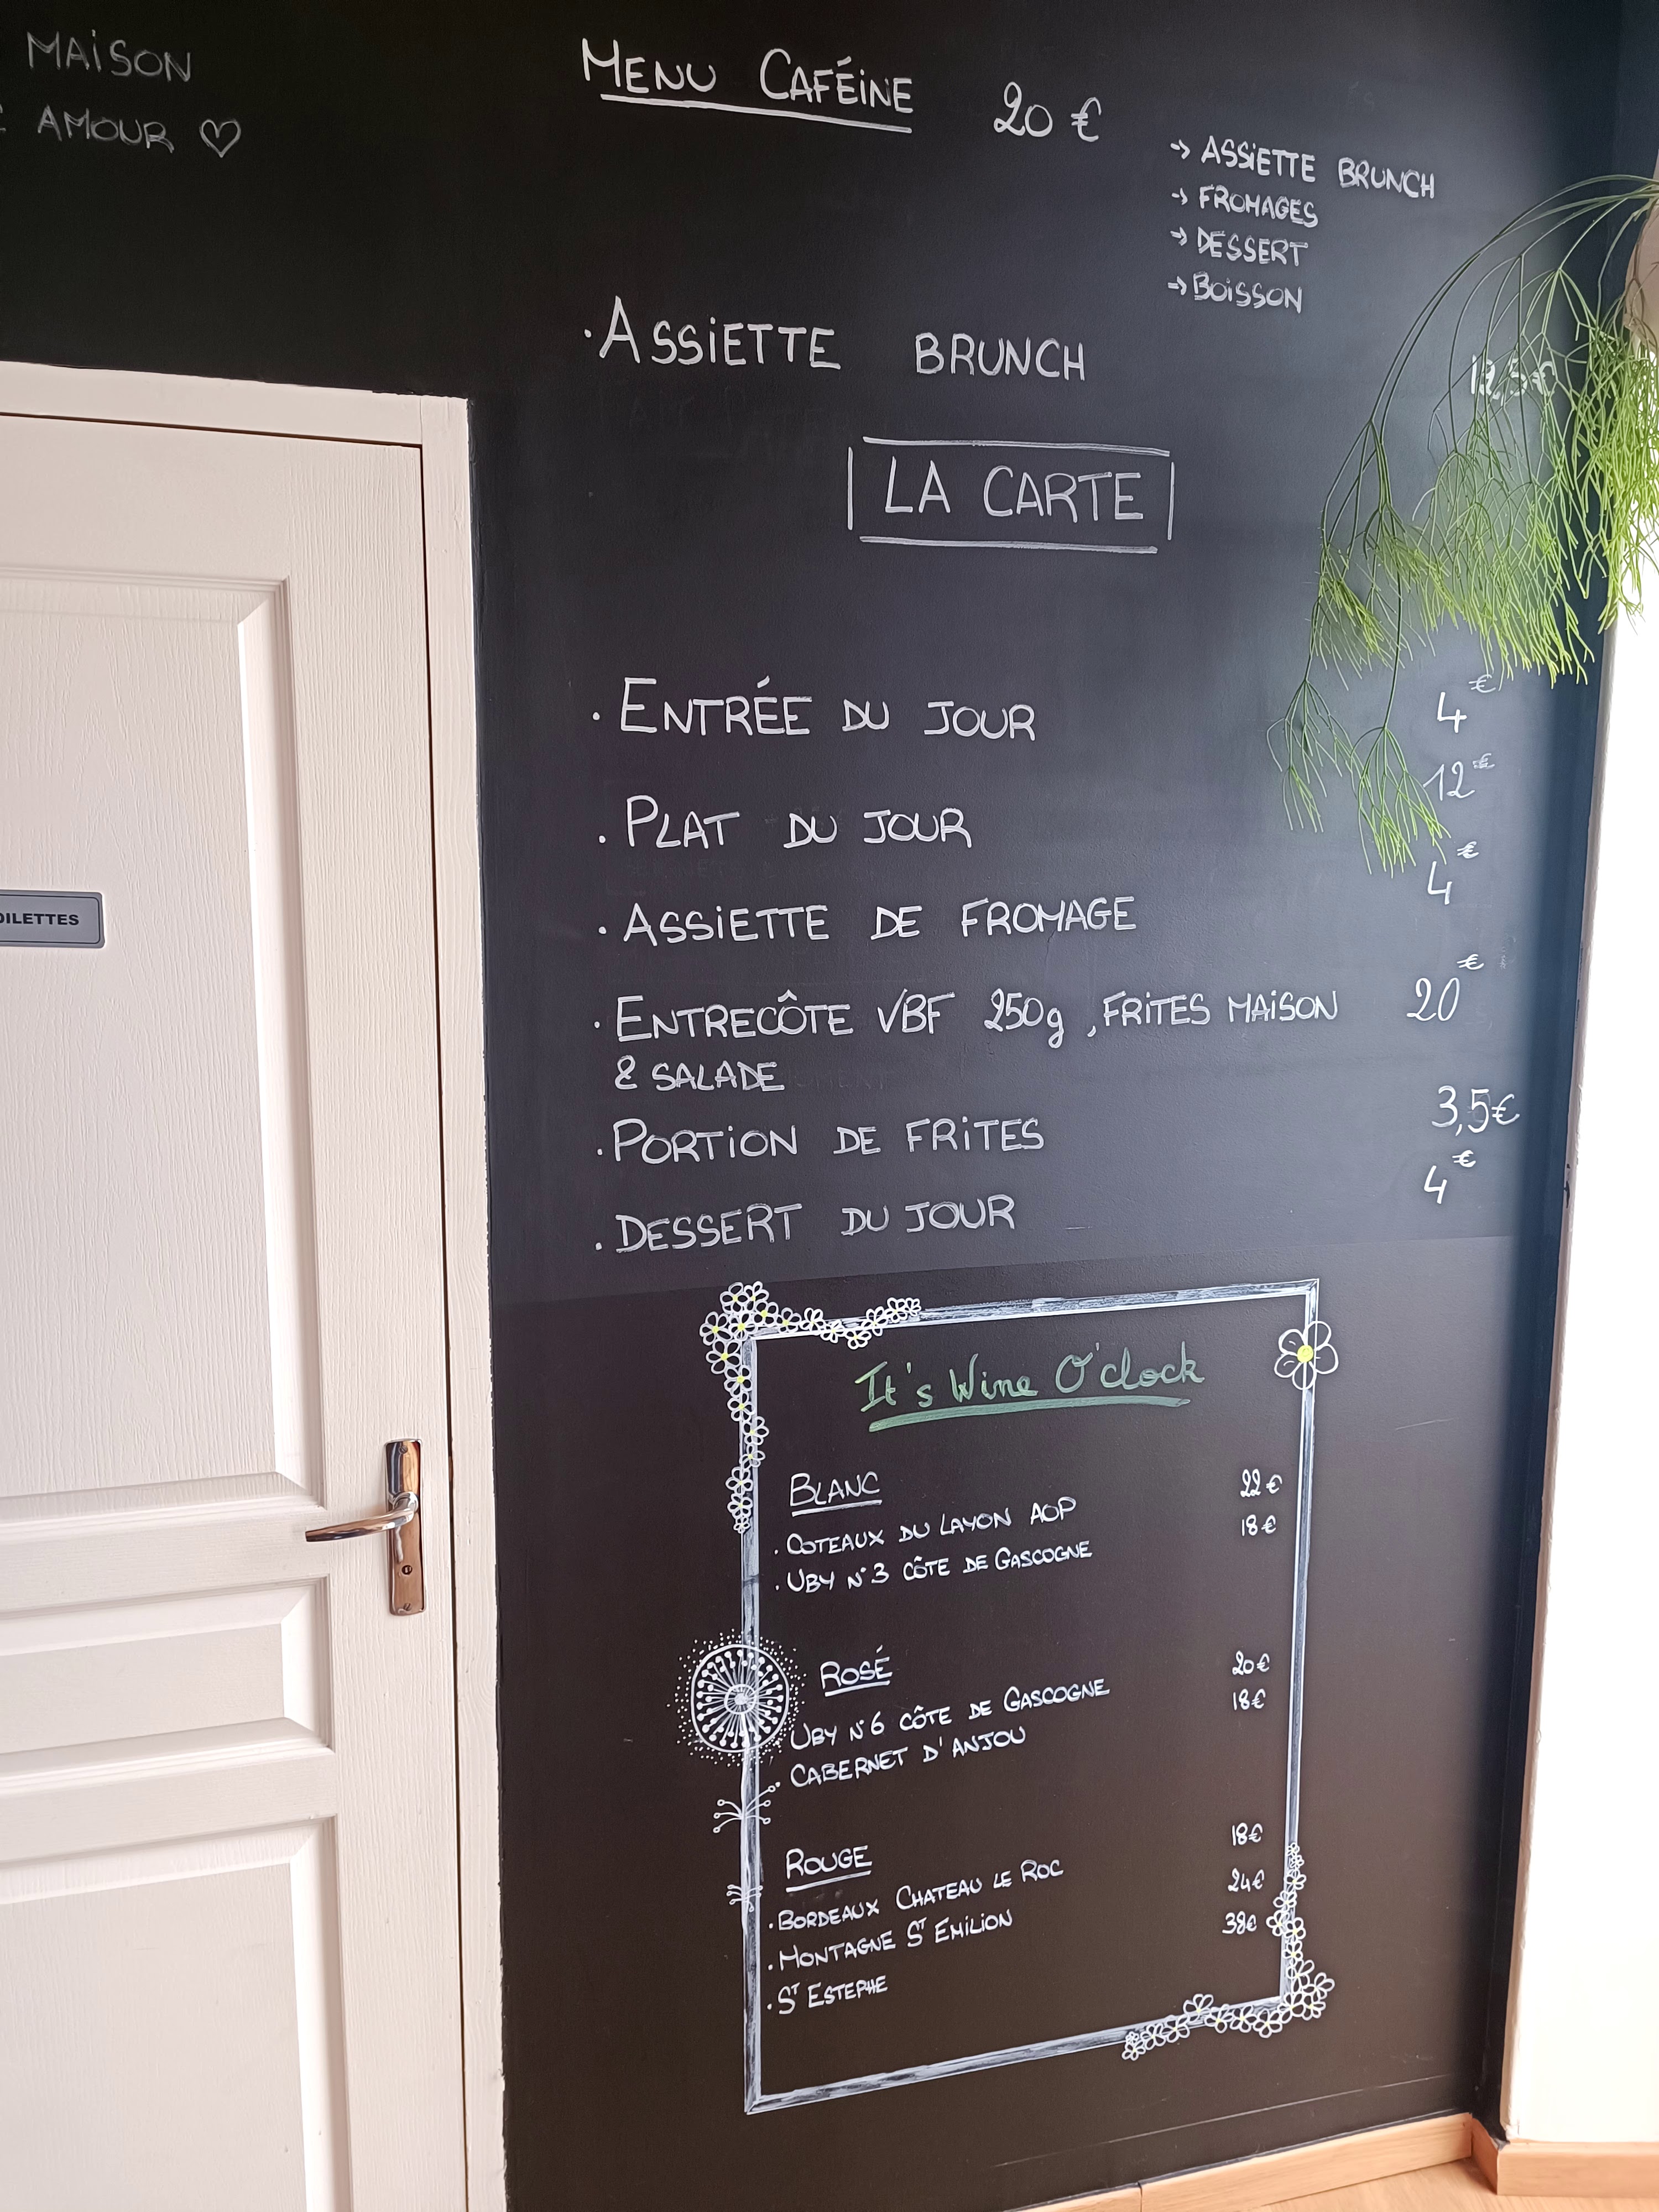 MAiSON
AMOUR ♡
MENU CAFÉiNE 20 €
→ ASSiETTE BRUNCH
→ FROMAGES
→ DESSERT
→ BOiSSON
· ASSiETTE BRUNCH
LA CARTE
· ENTRÉE DU JOUR 4€
. PLAT DU JOUR 12€
· ASSiETTE DE FROMAGE 4€
· ENTRECÔTE VBF 250g , FRiTES MAiSON 20€
& SALADE
. PORTiON DE FRiTES 3,5€
. DESSERT DU JOUR 4€
OILETTES
It's Wine O'clock
BLANC
. COTEAUX DU LAYON AOP 22€
. UBY N°3 CÔTE DE GASCOGNE 18€
ROSÉ
UBY N°6 CÔTE DE GASCOGNE 20€
. CABERNET D'ANJOU 18€
ROUGE
. BORDEAUX CHATEAU LE ROC 18€
. MONTAGNE ST EMILION 24€
. ST ESTEPHE 38€